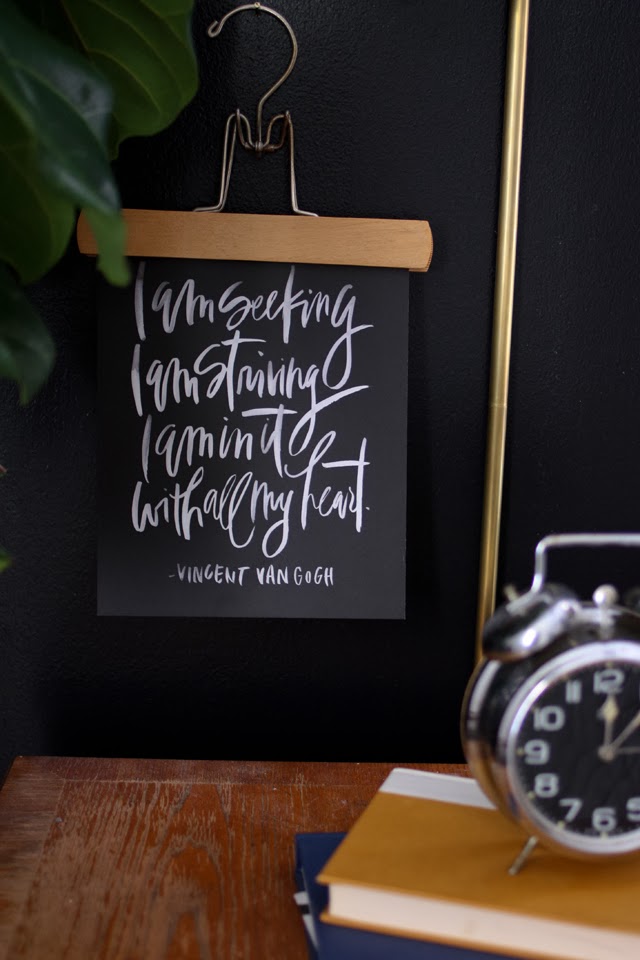 I am seeking
I am striving
I am in it
with all my heart.
-VINCENT VAN GOGH
12
11
10
9
8
7
6